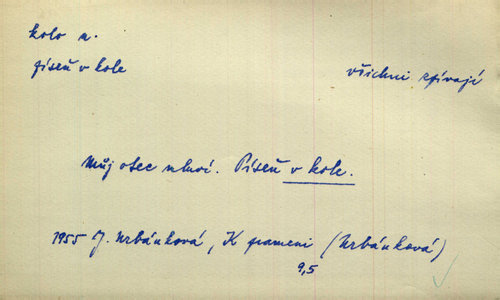 kolo n.
píseň v kole
všichni zpívají
Můj otec mluví. Píseň v kole.
1955 J. Urbánková, K prameni (Urbánková)
9,5